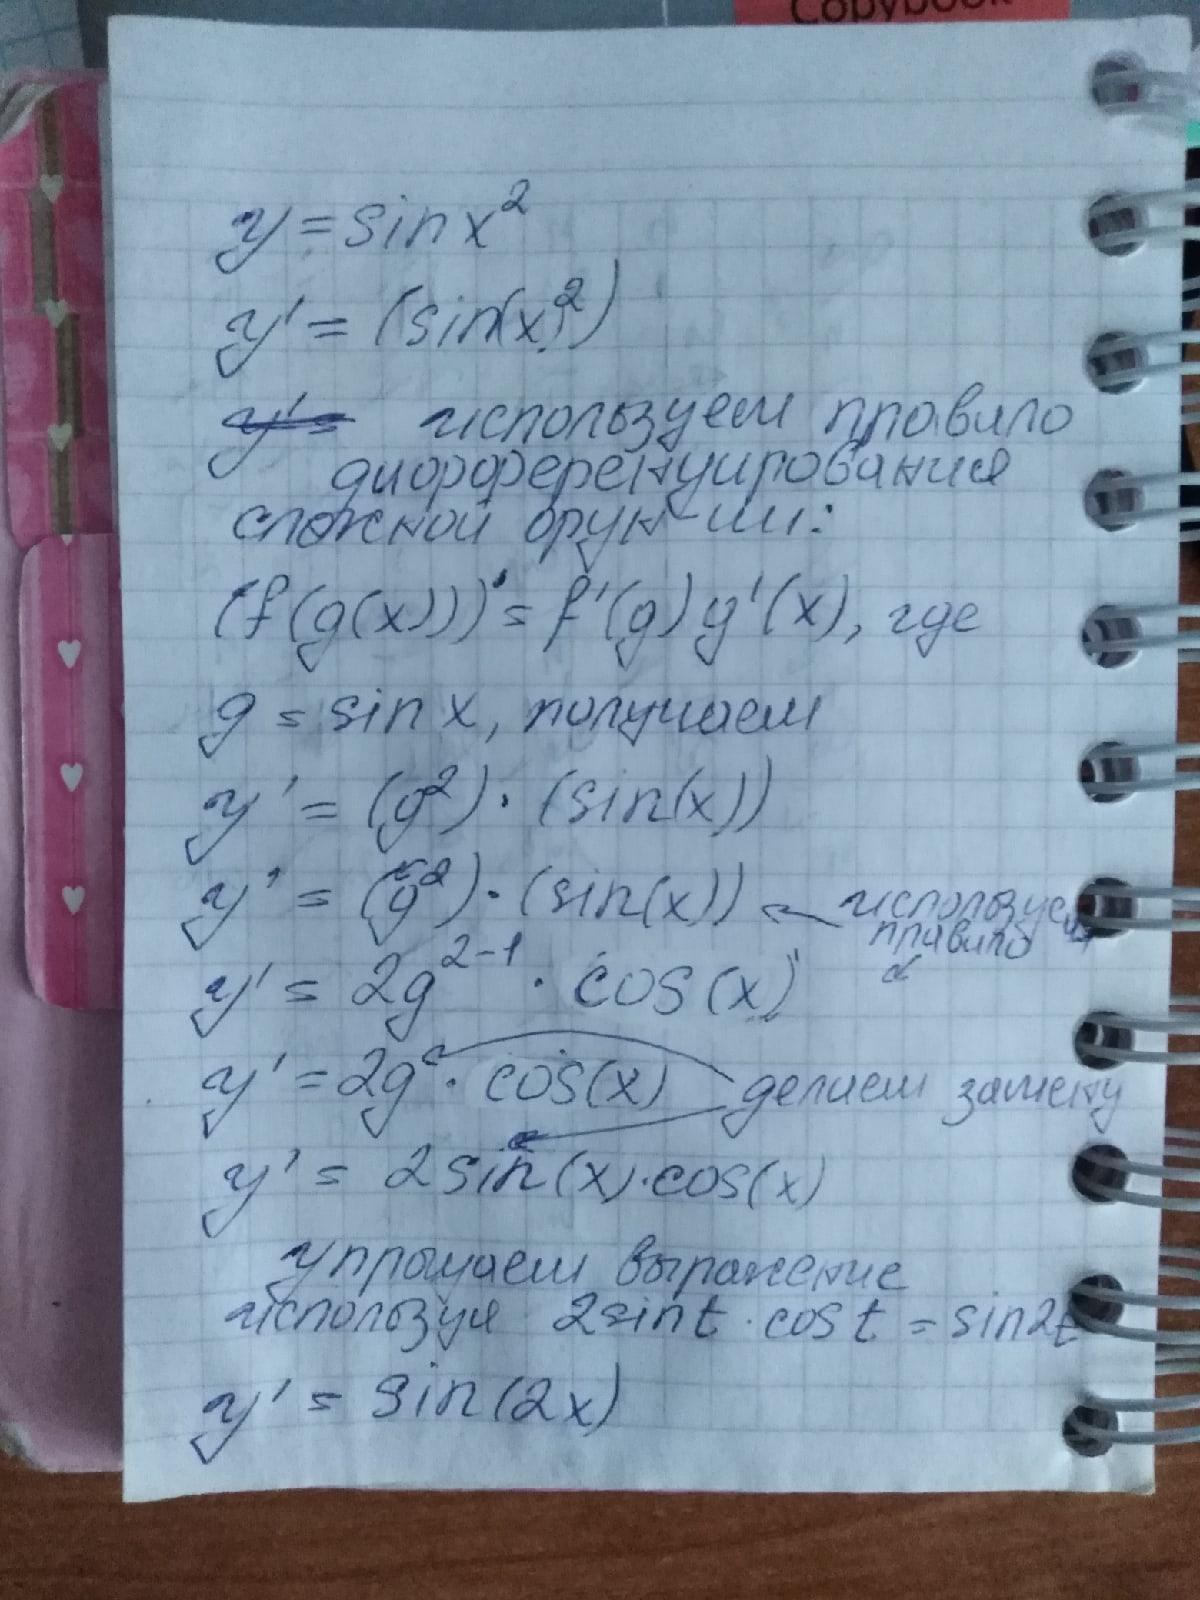 Copybook
y = sin x²
y' = (sin(x)²)
y' =
используем правило
дифференцирования
сложной фун-ции:
(f(g(x)))' = f'(g) g'(x), где
g = sin x, получаем
y' = (g²) · (sin(x))
y' = (g²) · (sin(x)) используем
правило
y' = 2g²⁻¹ · cos(x)
y' = 2g · cos(x) делаем замену
y' = 2 sin(x) · cos(x)
упрощаем выражение
используя 2 sin t · cos t = sin 2t
y' = sin(2x)